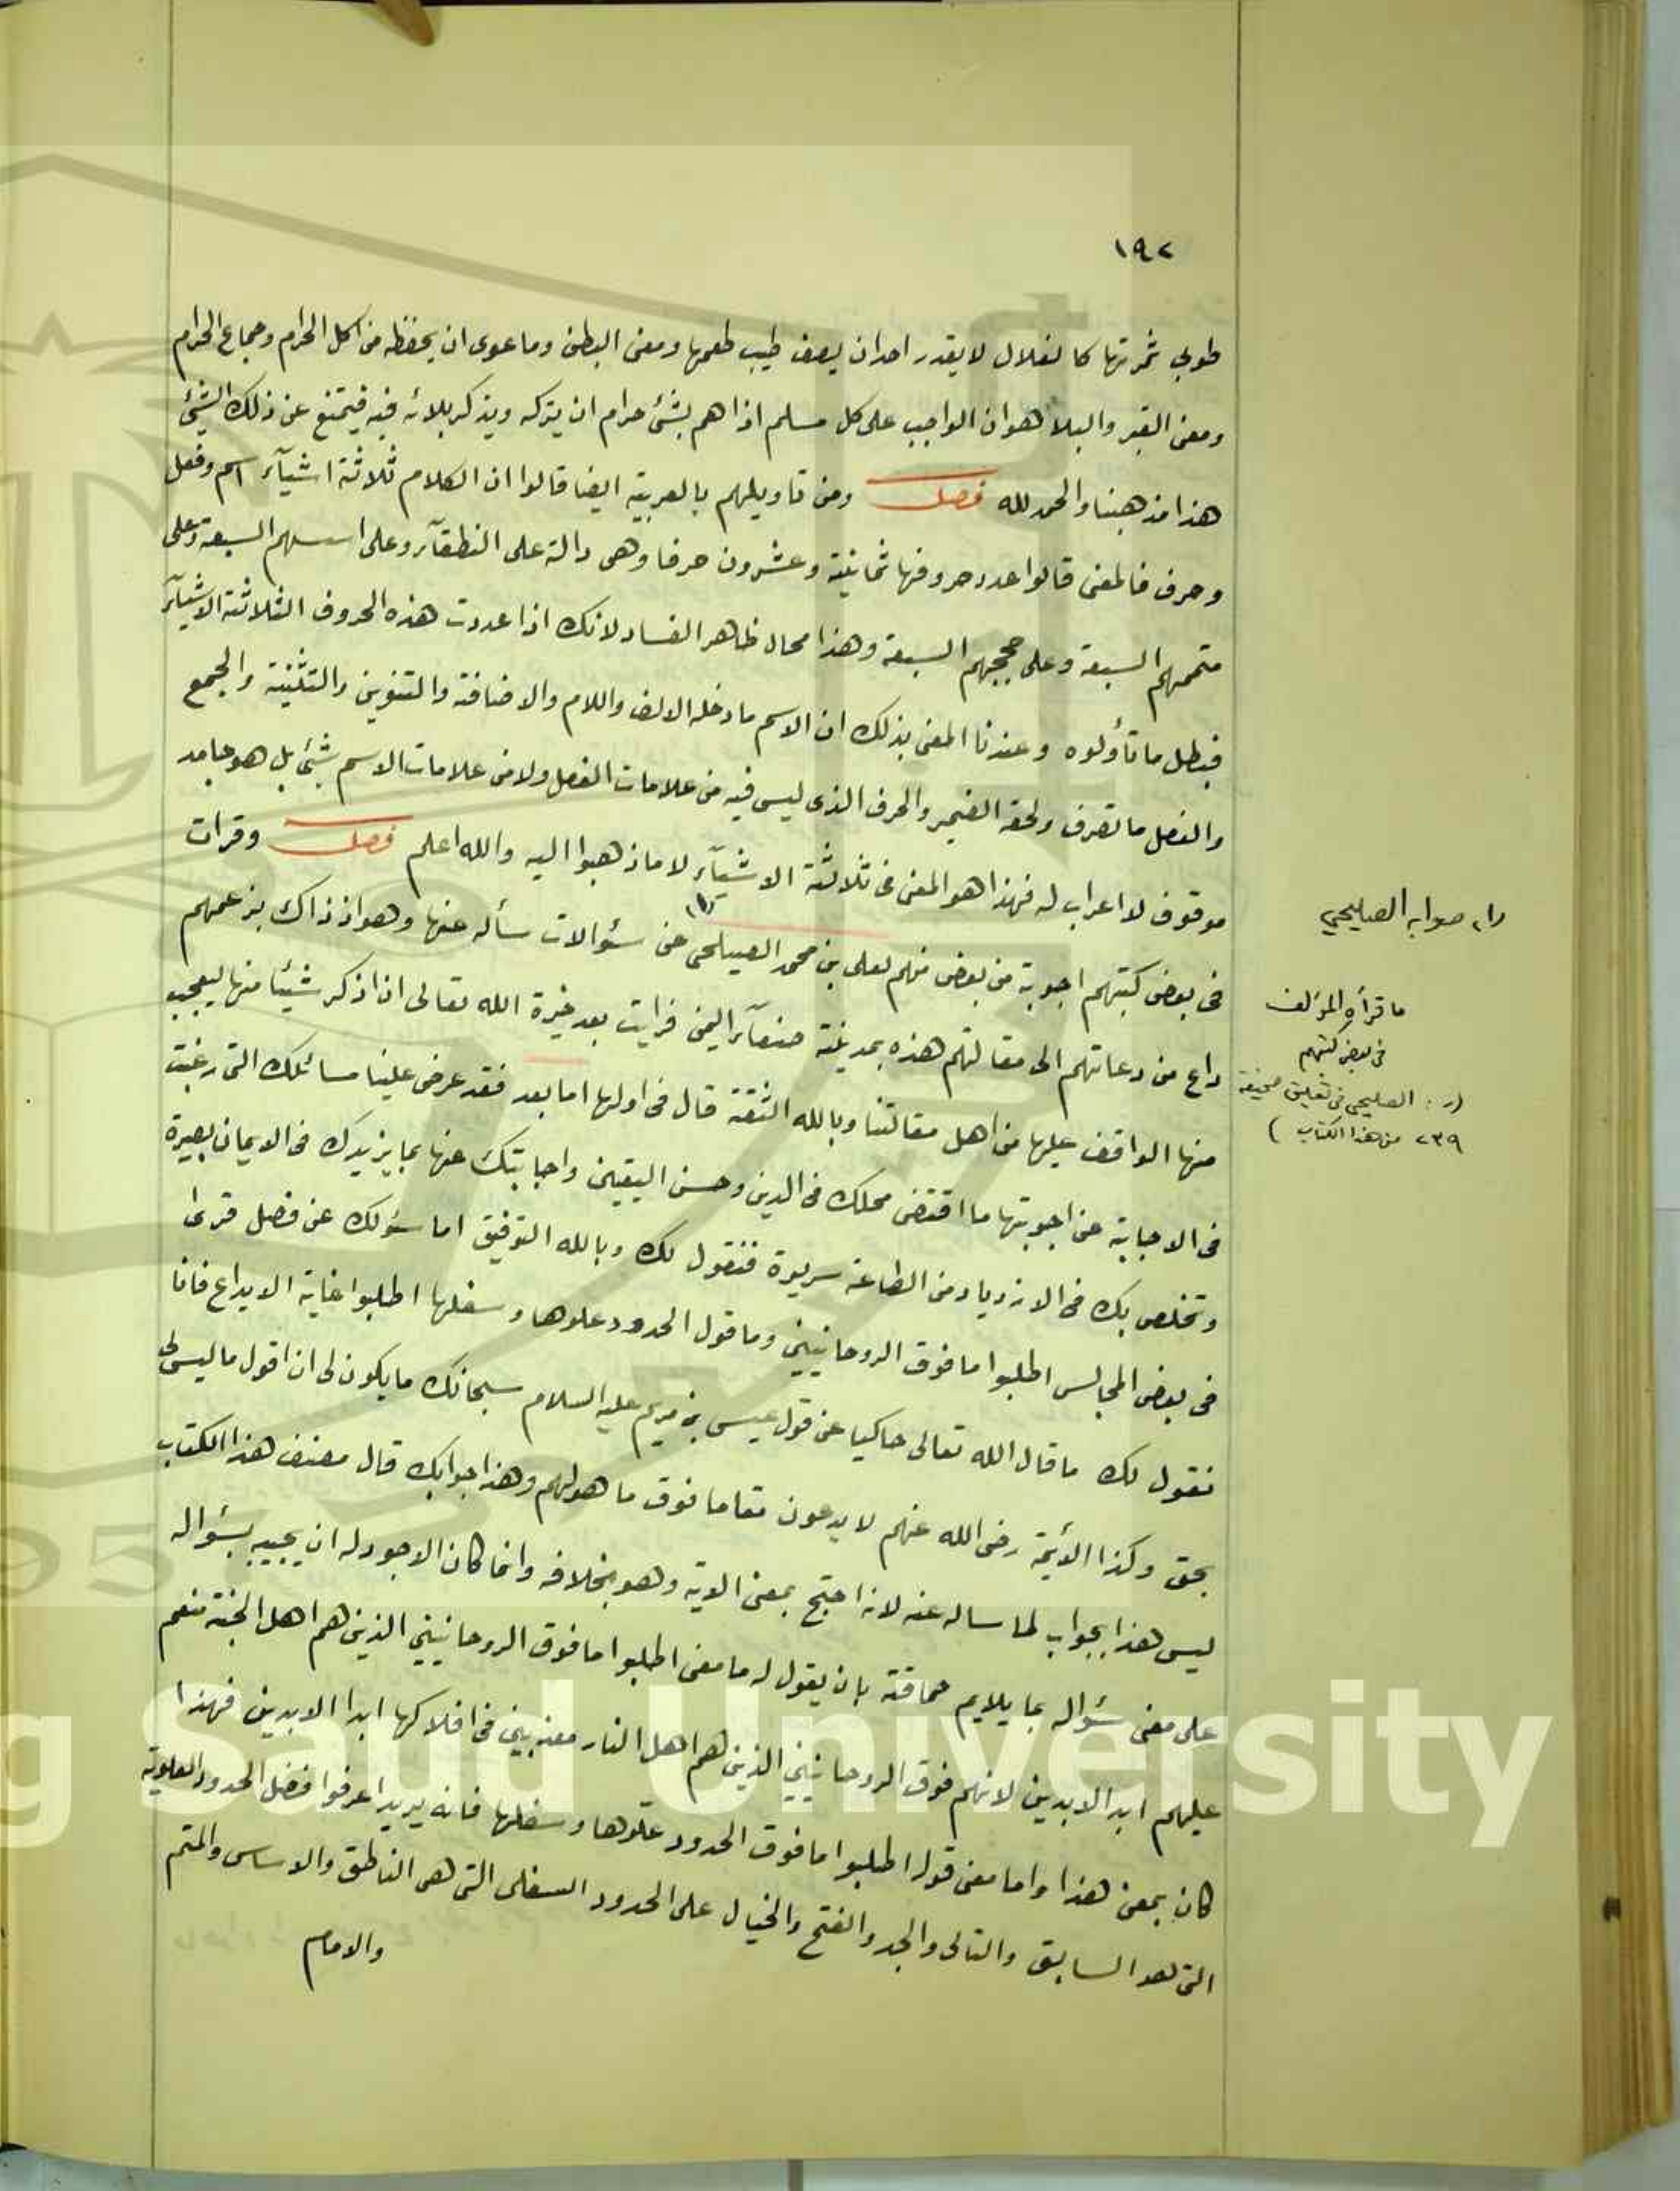 ١٩٢
طوبي ثمرتها كالغلال لا يقدر احدان يصف طيب طعمها ومعنى البطن وما عوى ان يحفظه من اكل الحرام وجماع الحرام
ومعنى القبر والبلا هو ان الواجب على كل مسلم اذا هم بشئ حرام ان يتركه ويذكر بلائه فيه فيمتنع عن ذلك الشئ
هذا مذهبنا والحمد لله فصل ومن تاويلهم بالعربية ايضا قالوا ان الكلام ثلاثة اشيآء اسم وفعل
وحرف فالمعنى قالوا عدد حروفها ثمانية وعشرون حرفا وهى دالة على النطقآء وعلى اسسهم السبعة وعلى
متممهم السبعة وعلى حججهم السبعة وهذا محال ظاهر الفساد لانك اذا عددت هذه الحروف الثلاثة الاشيآء
فبطل ما تأولوه وعندنا المعنى بذلك ان الاسم ما دخله الالف واللام والاضافة والتنوين والتثنية والجمع
والفعل ما تصرف ولحقه الضمير والحرف الذى ليس فيه من علامات الفعل ولا من علامات الاسم شئ بل هو جامد
موقوف لا اعراب له فهذا هو المعنى فى ثلاثة الاشيآء لا ما ذهبوا اليه والله اعلم فصل وقرات
فى بعض كتبهم اجوبة من بعض منهم لعلى بن محمد الصيلحى (١) عن سؤالات سأله عنها وهو اذ ذاك بزعمهم
داع من دعاتهم الى مقالتهم هذه بمدينة صنعآء اليمن فرايت بعد خيرة الله تعالى ان اذكر شيئا منها ليعجب
منها الواقف عليها من اهل مقالتنا وبالله الثقة قال فى اولها اما بعد فقد عرض علينا مسائلك التى رغبت
فى الاجابة عن اجوبتها ما اقتضى محلك فى الدين وحسن اليقين واجابتك عنها بما يزيدك فى الايمان بصيرة
وتخلص بك فى الازدياد من الطاعة سريرة فنقول لك وبالله التوفيق اما سؤلك عن فصل قرئ
فى بعض المجالس اطلبوا ما فوق الروحانيين وما قول الحدود علوها وسفلها اطلبوا غاية الابداع فانا
نقول لك ما قال الله تعالى حاكيا عن قول عيسى بن مريم عليه السلام سبحانك ما يكون لى ان اقول ما ليس لى
بحق وكذا الأئمة رضى الله عنهم لا يدعون مقاما فوق ما هو لهم وهذا جوابك قال مصنف هذا الكتاب
ليس هذا بجواب لما ساله عنه لانه احتج بمعنى الاية وهو بخلافه وانما كان الاجود له ان يجيبه بسؤاله
على معنى سؤاله بما يلايم حماقته بان يقول له ما معنى اطلبوا ما فوق الروحانيين الذين هم اهل الجنة منعم
عليهم ابد الابدين لانهم فوق الروحانيين الذين هم اهل النار معذبين فى افلاكها ابدا الابدين فهذا
كان بمعنى هذا واما معنى قوله اطلبوا ما فوق الحدود علوها وسفلها فانه يريد اعرفوا فضل الحدود العلوية
التى هو السابق والتالى والجد والفتح والخيال على الحدود السفلى التى هى الناطق والاساس والمتم
والامام
(١) صوابه الصليحي
ما قرأه المؤلف
فى بعض كتبهم
(ر: الصليحي فى تعليق صحيفة
٢٣٩ من هذا الكتاب)
King Saud University